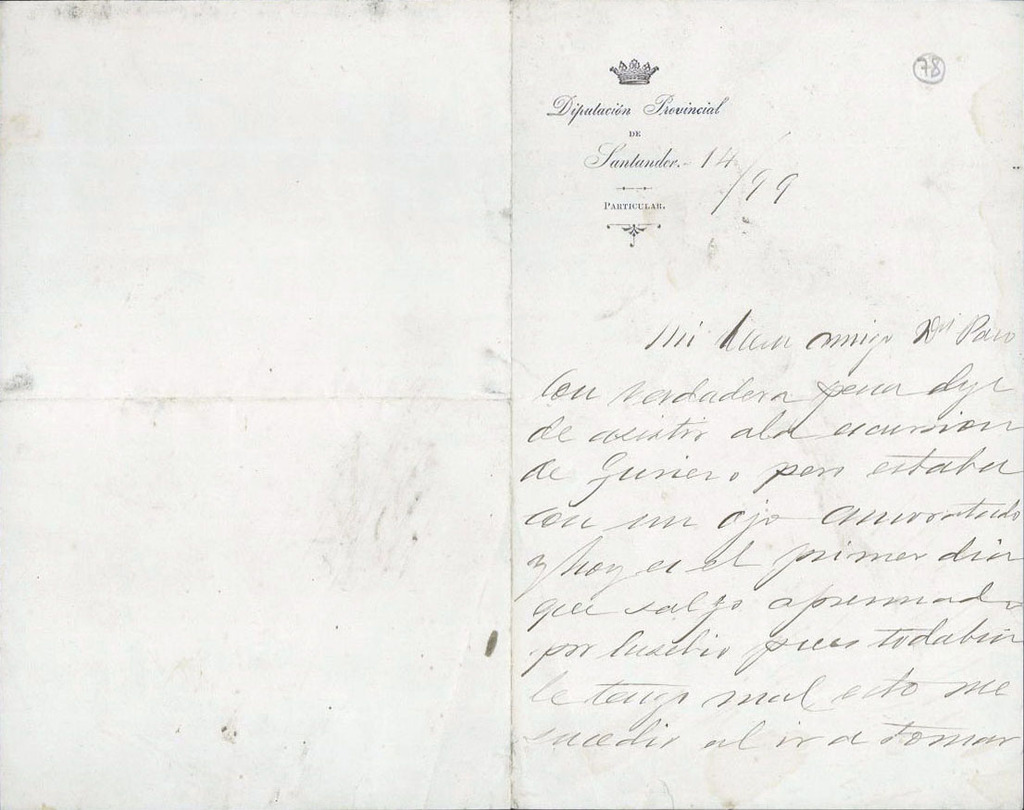 78
Diputación Provincial
DE
Santander. 14
/99
PARTICULAR.
Mi caro amigo Dn Paco
Con verdadera pena dejé
de asistir ala escursion
de Guriezo pero estaba
con un ojo amoratado
y hoy es el primer dia
que salgo apremiado
por Eusebio pues todabia
le tengo mal esto me
sucedio al ir a tomar